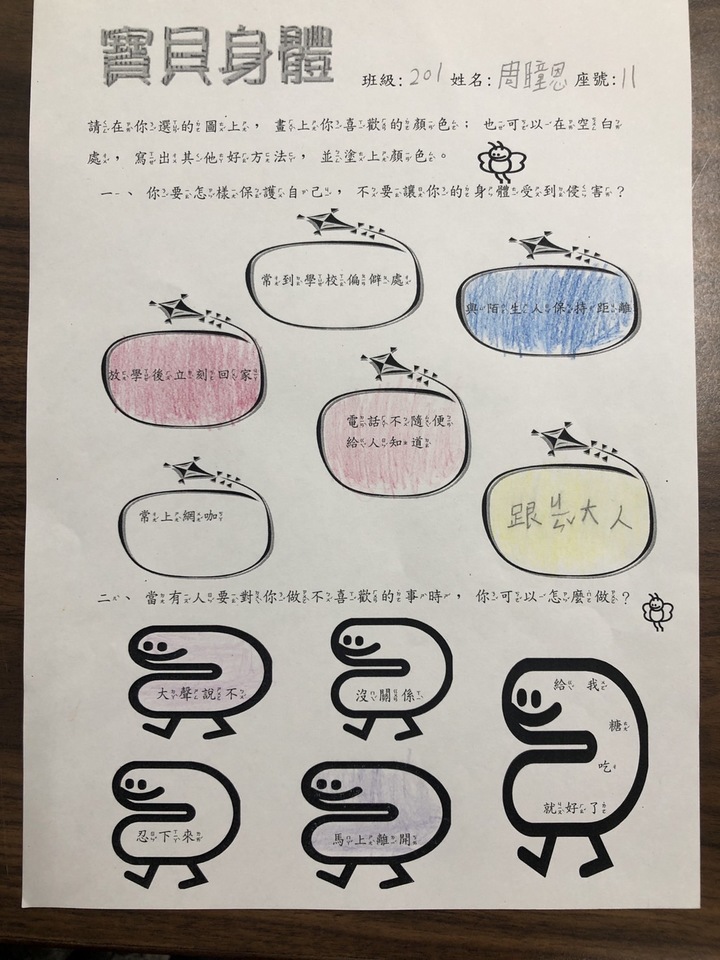 寶貝身體
班級：201 姓名：周瞳恩 座號：11
請在你選的圖上，畫上你喜歡的顏色；也可以在空白
處，寫出其他好方法，並塗上顏色。
一、你要怎樣保護自己，不要讓你的身體受到侵害？
常到學校偏僻處
與陌生人保持距離
放學後立刻回家
電話不隨便
給人知道
常上網咖
跟ㄐㄧㄣˇ大人
二、當有人要對你做不喜歡的事時，你可以怎麼做？
大聲說不
沒關係
給我
糖
吃
就好了
忍下來
馬上離開